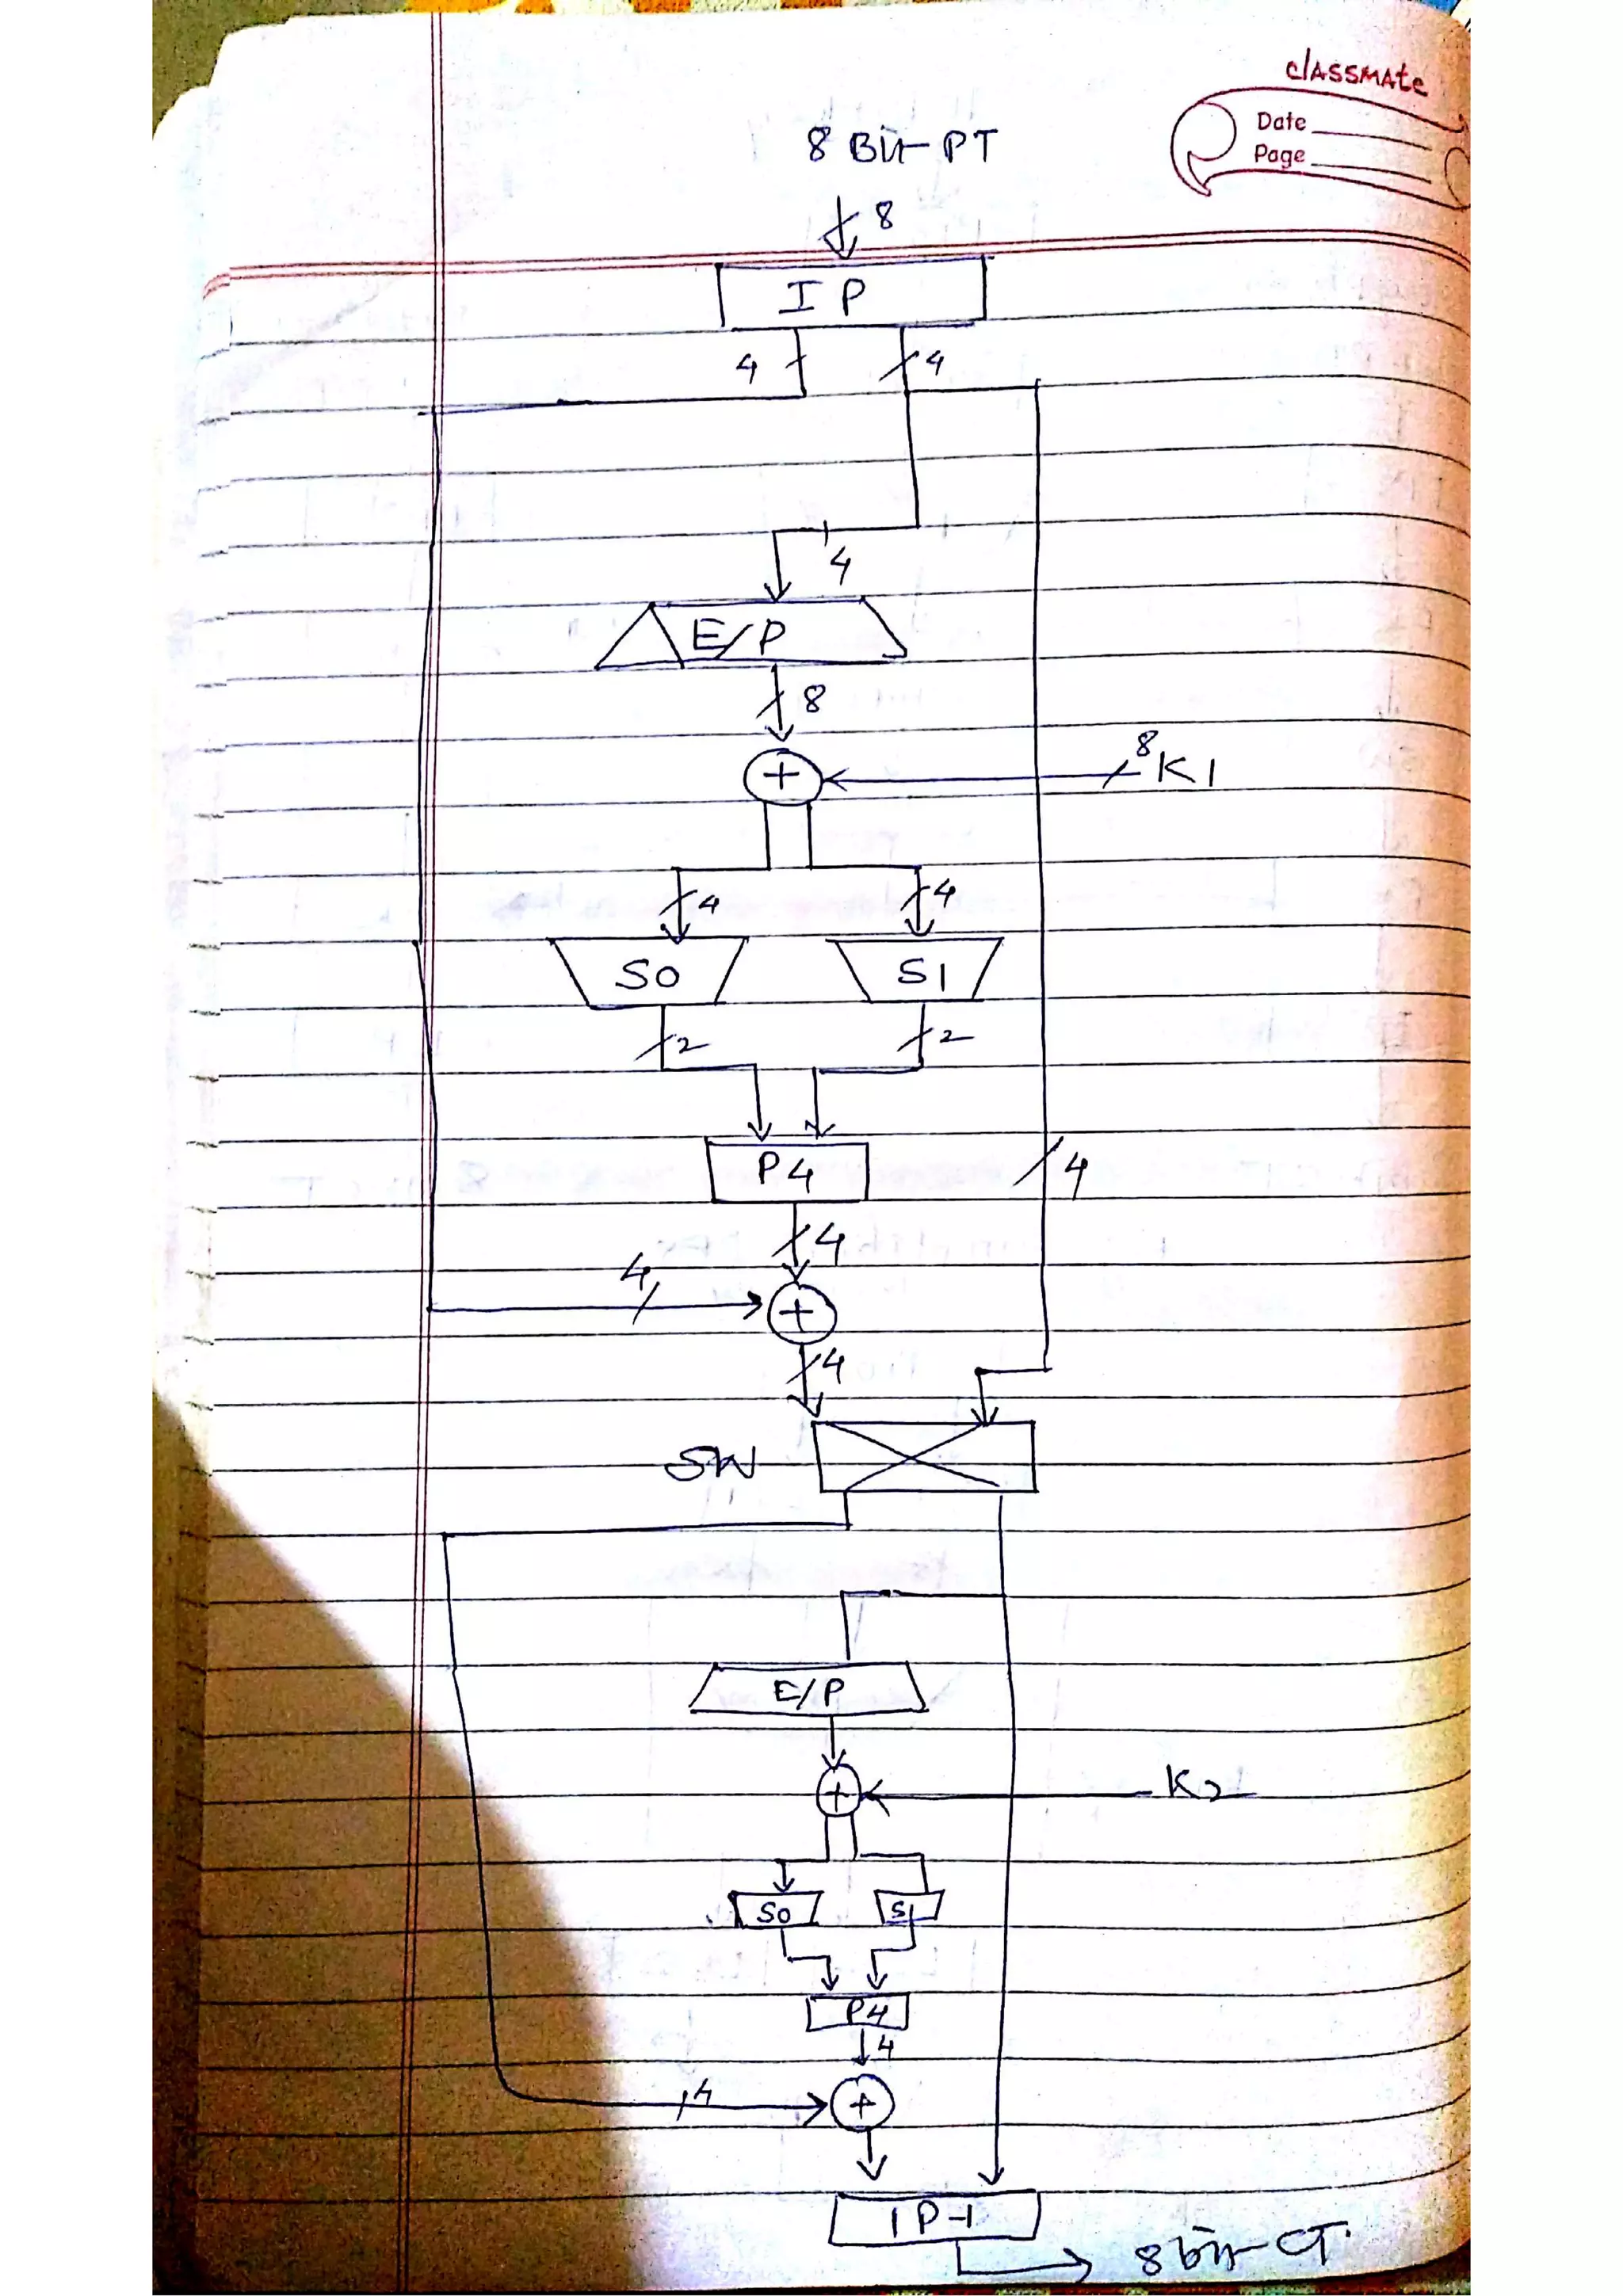 classmate
Date
Page
8 Bit PT
8
IP
4 4
4
E/P
8
+ 8 K1
4 4
S0 S1
2 2
P4
4
4
4
+
4
SW
E/P
+ K2
S0 S1
P4
4
4 +
IP-1
8 bit CT